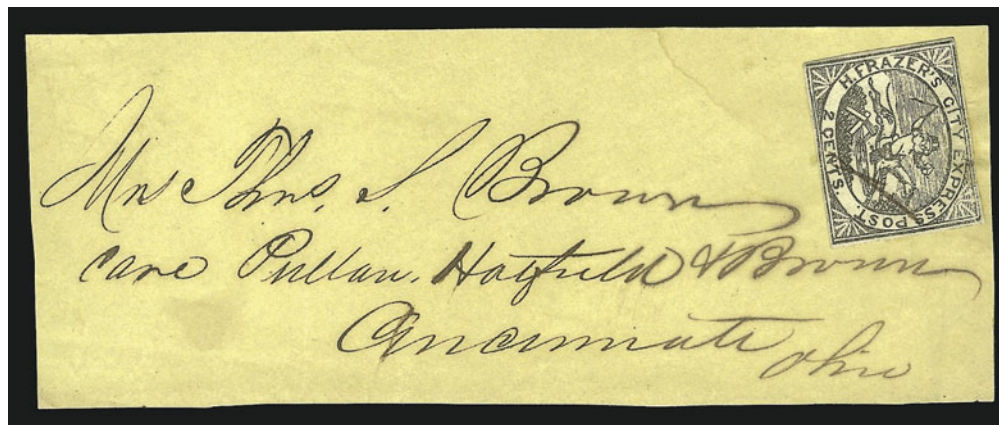 H. FRAZER'S CITY EXPRESS POST.
2 CENTS.
Mr Thos. S. Brown
care Pullan, Hatfield & Brown
Cincinnati
Ohio